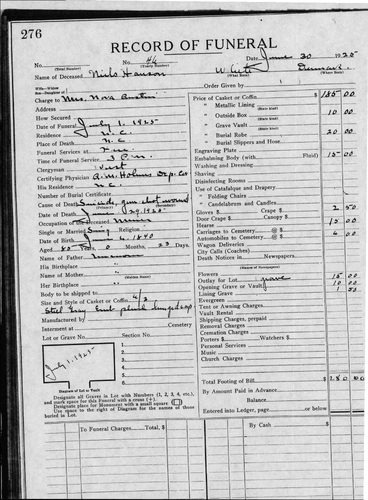 276
RECORD OF FUNERAL
No. No. 46 Date June 30 1925
(Total Number) (Yearly Number)
Name of Deceased Niels Hanson White Denmark
(What Race) (Where Born)
Husband—Wife—Widow
Son—Daughter of Order Given by
Charge to Mrs. Nora Austin
Address
How Secured
Date of Funeral July 1, 1925
Residence N.C.
Place of Death N.C.
Funeral Services at
Time of Funeral Service 2 P.M.
Clergyman West
Certifying Physician A.M. Holmes Dep. Cor
His Residence N.C.
Number of Burial Certificate
Cause of Death Suicide, gun shot wound
Date of Death June 29, 1925
Occupation of Deceased Miner
Single or Married Sing Religion
Date of Birth June 6, 1840
Aged Years 0 Months 23 Days
Name of Father Unknown
His Birthplace "
Name of Mother "
(Maiden Name)
Her Birthplace "
Body to be shipped to
Size and Style of Casket or Coffin 6/3
Steel Gray Emb plush hinged cap
Manufactured by
Interment at Cemetery
Lot or Grave No. Section No.
July 1, 1925
1.
2.
3.
4.
5.
6.
Diagram of Lot or Vault
Designate all Graves in Lot with Numbers (1, 2, 3, 4, etc.),
and mark space for this Funeral with a cross (+).
Designate place for Monument with a small square
Use space to the right of Diagram for the names of those
buried in Lot.
Price of Casket or Coffin $ 185 00
(State Kind)
" Metallic Lining
" Outside Box 10 00
(State Kind)
" Grave Vault
(State Kind)
" Burial Robe 20 00
(State Kind)
" Burial Slippers and Hose
Engraving Plate
Embalming Body (with Fluid) 15 00
Washing and Dressing
Shaving
Disinfecting Rooms
Use of Catafalque and Drapery
" Folding Chairs
" Candelabrum and Candles
Gloves $ Crape $ 2 50
Door Crape $ Canopy $
Hearse 12 00
Carriages to Cemetery @ $
Automobiles to Cemetery @ $ 6 00
Wagon Deliveries
City Calls (Coaches)
Death Notices in Newspapers
(Names of Newspapers)
Flowers
Outlay for Lot grave 15 00
Opening Grave or Vault 10 00
Lining Grave 1 50
Evergreen
Tent or Awning Charges
Vault Rental
Shipping Charges, prepaid
Removal Charges
Cremation Charges
Porters $ Watchers $
Personal Services
Music
Church Charges
Total Footing of Bill $ 280 00
By Amount Paid in Advance
Balance
Entered into Ledger, page or below
To Funeral Charges Total, $ By Cash $